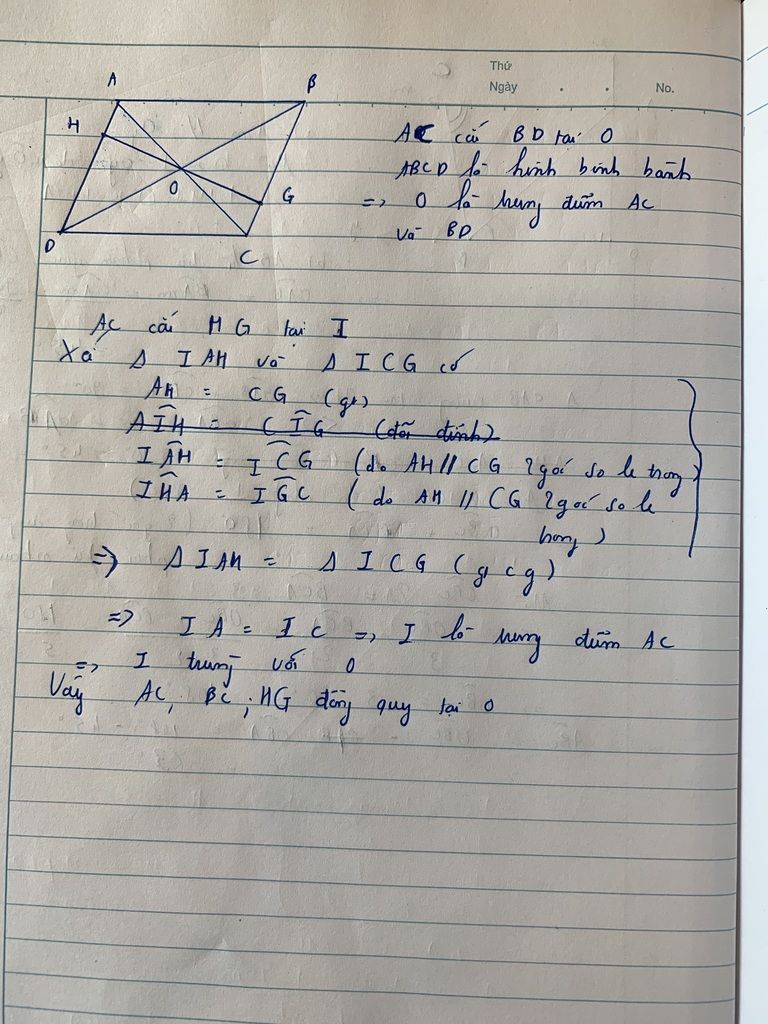 Thứ
Ngày . . No.
A B
H
O G
D C
AC cắt BD tại O
ABCD là hình bình hành
=> O là trung điểm AC
và BD
AC cắt HG tại I
Xét Δ IAH và Δ ICG có
AH = CG (gt)
AIH = CIG (đối đỉnh)
IAH = ICG (do AH // CG 2 góc so le trong)
IHA = IGC ( do AH // CG 2 góc so le
trong )
=> Δ IAH = Δ ICG (g c g)
=> IA = IC => I là trung điểm AC
=> I trùng với O
Vậy AC, BC ; HG đồng quy tại O